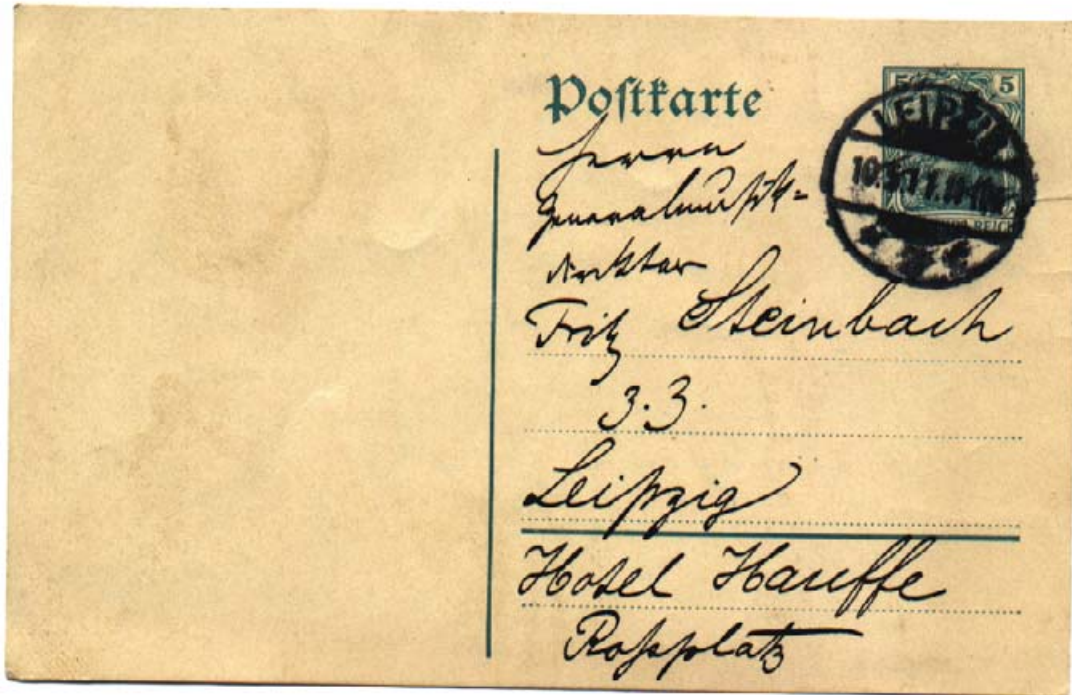 Postkarte
5 5
LEIPZIG
REICH
Herrn
Generalmusik=
direktor
Fritz Steinbach
z.Z.
Leipzig
Hotel Hauffe
Rossplatz